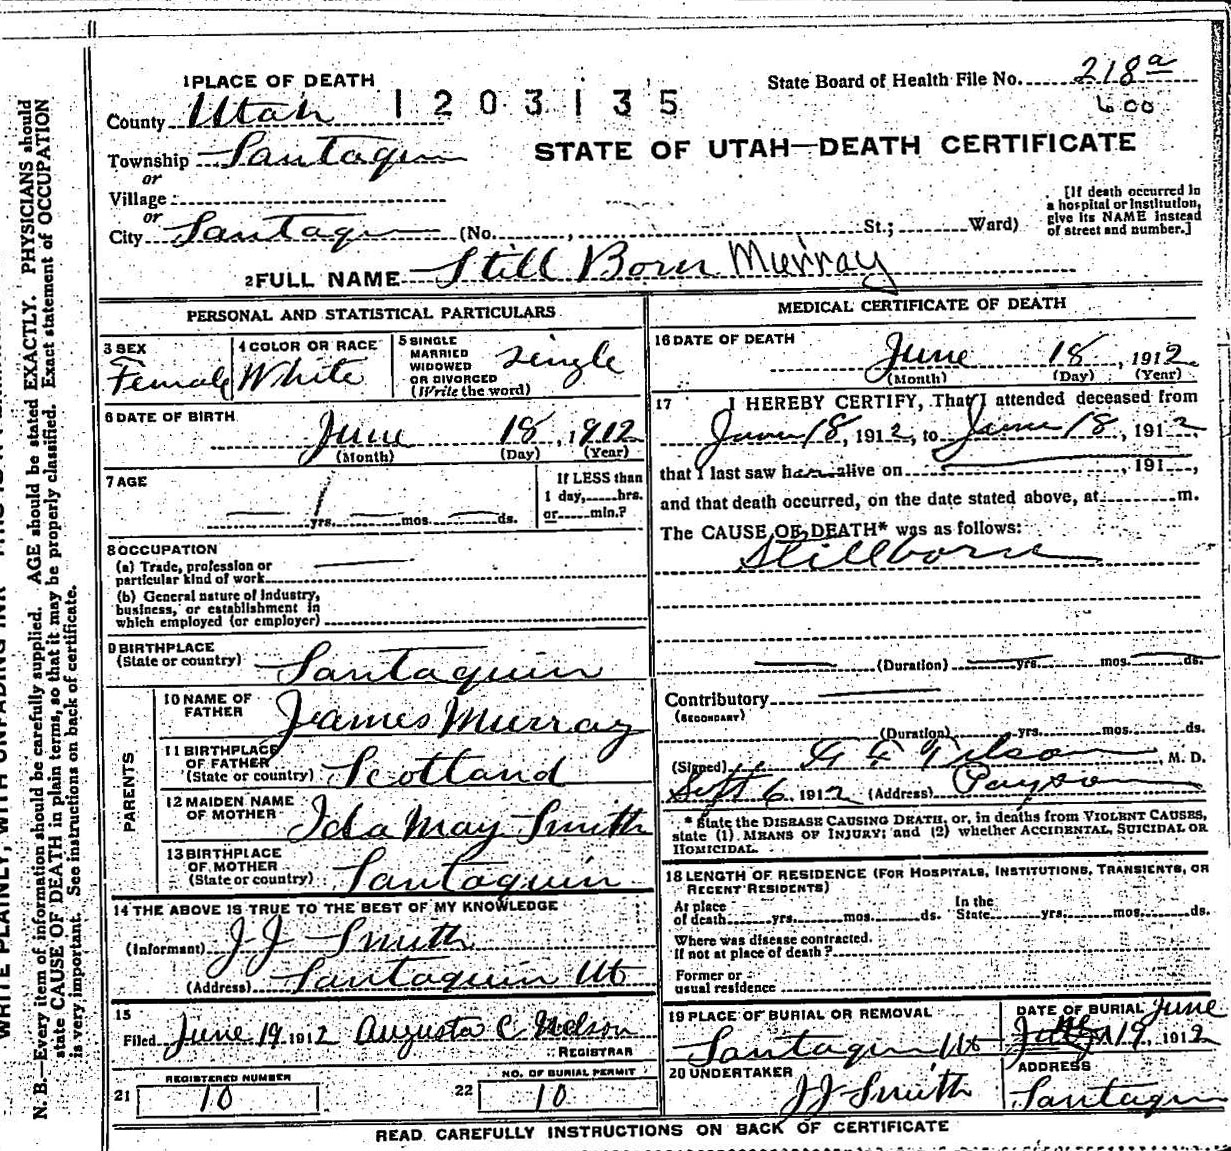 1 PLACE OF DEATH
State Board of Health File No. 218a
County Utah 1203135
600
Township Santaquin
STATE OF UTAH—DEATH CERTIFICATE
or
Village
or
City Santaquin (No. , St.; Ward)
[If death occurred in
a hospital or institution,
give its NAME instead
of street and number.]
2 FULL NAME Still Born Murray
PERSONAL AND STATISTICAL PARTICULARS
3 SEX
Female
4 COLOR OR RACE
White
5 SINGLE
MARRIED
WIDOWED
OR DIVORCED
(Write the word)
single
6 DATE OF BIRTH
June 18, 1912
(Month) (Day) (Year)
7 AGE
yrs. mos. ds.
If LESS than
1 day, hrs.
or min.?
8 OCCUPATION
(a) Trade, profession or
particular kind of work
(b) General nature of Industry,
business, or establishment in
which employed (or employer)
9 BIRTHPLACE
(State or country) Santaquin
PARENTS
10 NAME OF
FATHER James Murray
11 BIRTHPLACE
OF FATHER
(State or country) Scotland
12 MAIDEN NAME
OF MOTHER Ida May Smith
13 BIRTHPLACE
OF MOTHER
(State or country) Santaquin
14 THE ABOVE IS TRUE TO THE BEST OF MY KNOWLEDGE
(Informant) J J Smith
(Address) Santaquin Ut
15
Filed June 19 1912 Augusta C Nelson
REGISTRAR
REGISTERED NUMBER
21 10
NO. OF BURIAL PERMIT
22 10
MEDICAL CERTIFICATE OF DEATH
16 DATE OF DEATH
June 18, 1912
(Month) (Day) (Year)
17 I HEREBY CERTIFY, That I attended deceased from
June 18, 1912, to June 18, 1912
that I last saw her alive on , 191 ,
and that death occurred, on the date stated above, at m.
The CAUSE OF DEATH* was as follows:
Stillborn
(Duration) yrs. mos. ds.
Contributory
(SECONDARY)
(Duration) yrs. mos. ds.
(Signed) , M. D.
Sept 6, 1912 (Address) Payson
* State the DISEASE CAUSING DEATH, or, in deaths from VIOLENT CAUSES,
state (1) MEANS OF INJURY; and (2) whether ACCIDENTAL, SUICIDAL OR
HOMICIDAL.
18 LENGTH OF RESIDENCE (FOR HOSPITALS, INSTITUTIONS, TRANSIENTS, OR
RECENT RESIDENTS)
At place
of death yrs. mos. ds.
In the
State yrs. mos. ds.
Where was disease contracted.
If not at place of death?
Former or
usual residence
19 PLACE OF BURIAL OR REMOVAL
Santaquin Ut
DATE OF BURIAL June
19, 1912
20 UNDERTAKER
J J Smith
ADDRESS
Santaquin
READ CAREFULLY INSTRUCTIONS ON BACK OF CERTIFICATE
N. B.—Every item of information should be carefully supplied. AGE should be stated EXACTLY. PHYSICIANS should
state CAUSE OF DEATH in plain terms, so that it may be properly classified. Exact statement of OCCUPATION
is very important. See instructions on back of certificate.
WRITE PLAINLY, WITH UNFADING INK